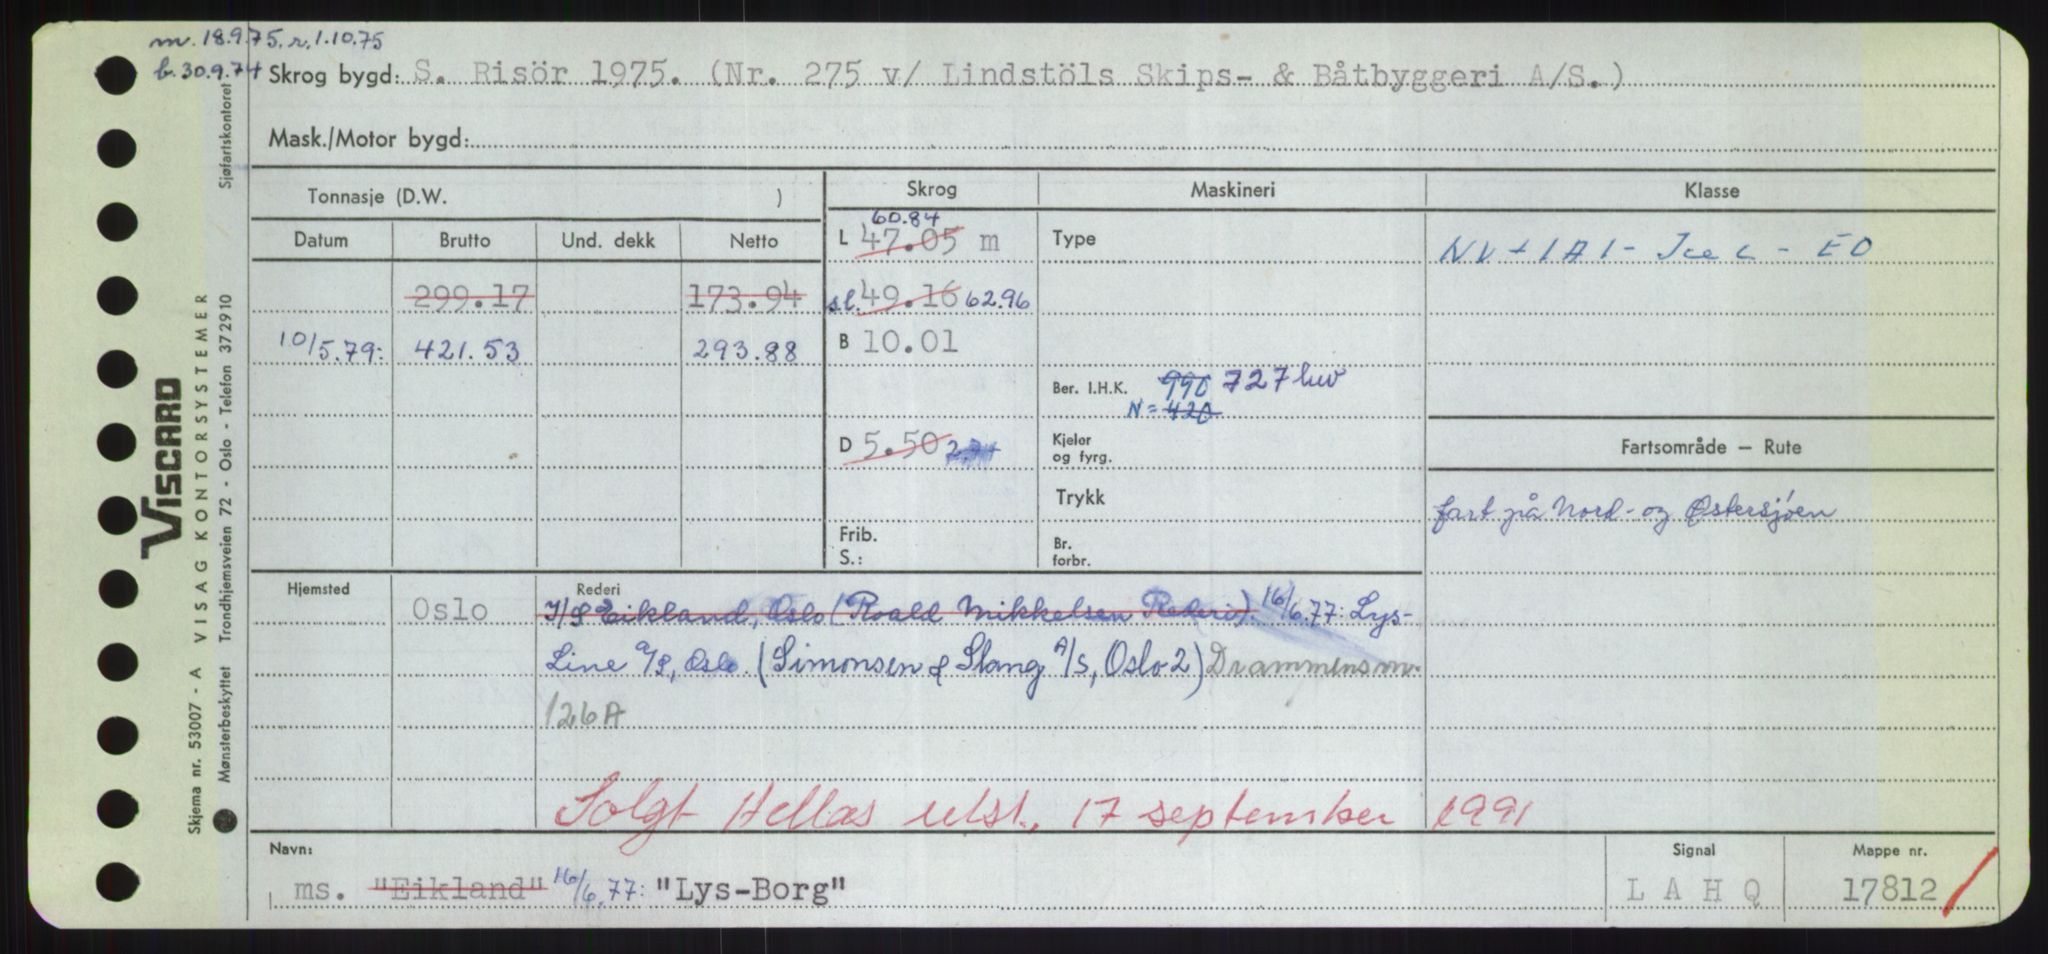 m. 18.9.75. r. 1.10.75
b. 30.9.74
Skrog bygd: S. Risör 1975. (Nr. 275 v/ Lindstöls Skips- & Båtbyggeri A/S.)
Mask./Motor bygd:
Tonnasje (D.W. )
Skrog
Maskineri
Klasse
Datum Brutto Und. dekk Netto
60.84
L 47.05 m
Type
NV + 1A1 - Ice C - EO
299.17 173.94
s.l. 49.16 62.96
10/5.79: 421.53 293.88
B 10.01
Ber. I.H.K. 990 727 hw
N = 420
D 5.50
Kjeler
og fyrg.
Fartsområde — Rute
Trykk
fart på Nord- og Østersjøen
Frib.
S.:
Br.
forbr.
Hjemsted
Oslo
Rederi
I/S Eikland, Oslo (Roald Mikkelsen Rederi). 16/6.77: Lys-
Line A/S, Oslo. (Simonsen & Slang A/S, Oslo 2)
126A
Solgt Hellas utst. 17 september 1991
Navn:
ms. "Eikland" 16/6.77: "Lys-Borg"
Signal
L A H Q
Mappe nr.
17812
Skjema nr. 53007 - A VISAG KONTORSYSTEMER
VISCARD
Mønsterbeskyttet Trondhjemsveien 72 - Oslo - Telefon 37 29 10 Sjøfartskontoret